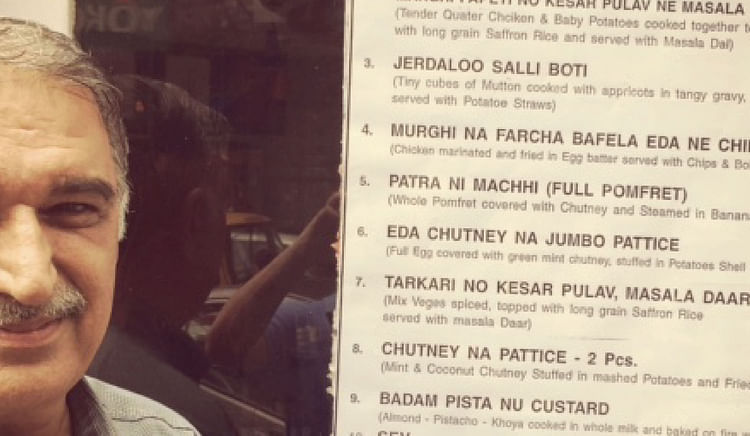 PAPETI NO KESAR PULAV NE MASALA
(Tender Quater Chciken & Baby Potatoes cooked together
with long grain Saffron Rice and served with Masala Dal)
3. JERDALOO SALLI BOTI
(Tiny cubes of Mutton cooked with appricots in tangy gravy,
served with Potatoe Straws)
4. MURGHI NA FARCHA BAFELA EDA NE
(Chicken marinated and fried in Egg batter served with Chips &
5. PATRA NI MACHHI (FULL POMFRET)
(Whole Pomfret covered with Chutney and Steamed in
6. EDA CHUTNEY NA JUMBO PATTICE
(Full Egg covered with green mint chutney, stuffed in Potatoes Shell
7. TARKARI NO KESAR PULAV, MASALA DAAR
(Mix Veges spiced, topped with long grain Saffron Rice
served with masala Daar)
8. CHUTNEY NA PATTICE - 2 Pcs.
(Mint & Coconut Chutney Stuffed in mashed Potatoes and
9. BADAM PISTA NU CUSTARD
(Almond - Pistacho - Khoya cooked in whole milk and baked on
10. SEV